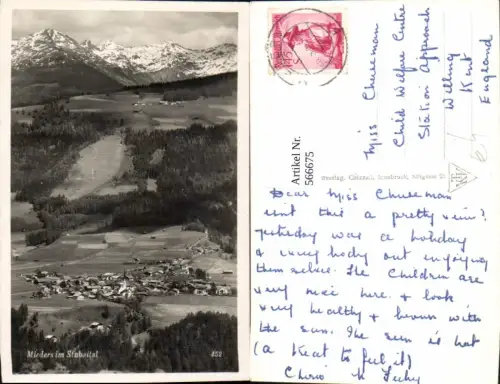 Mieders im Stubaital 852
Artikel Nr.
566675
Miss Cheeseman
Child Welfare Centre
Station Approach
Welling
Kent
England
Innsbruck,
Dear Miss Cheeseman
isn't this a pretty view?
yesterday was a holiday
& every body out enjoying
them selves. The Children are
very nice here. & look
very healthy & brown with
the sun. The sun is hot
(a treat to feel it)
Cheerio